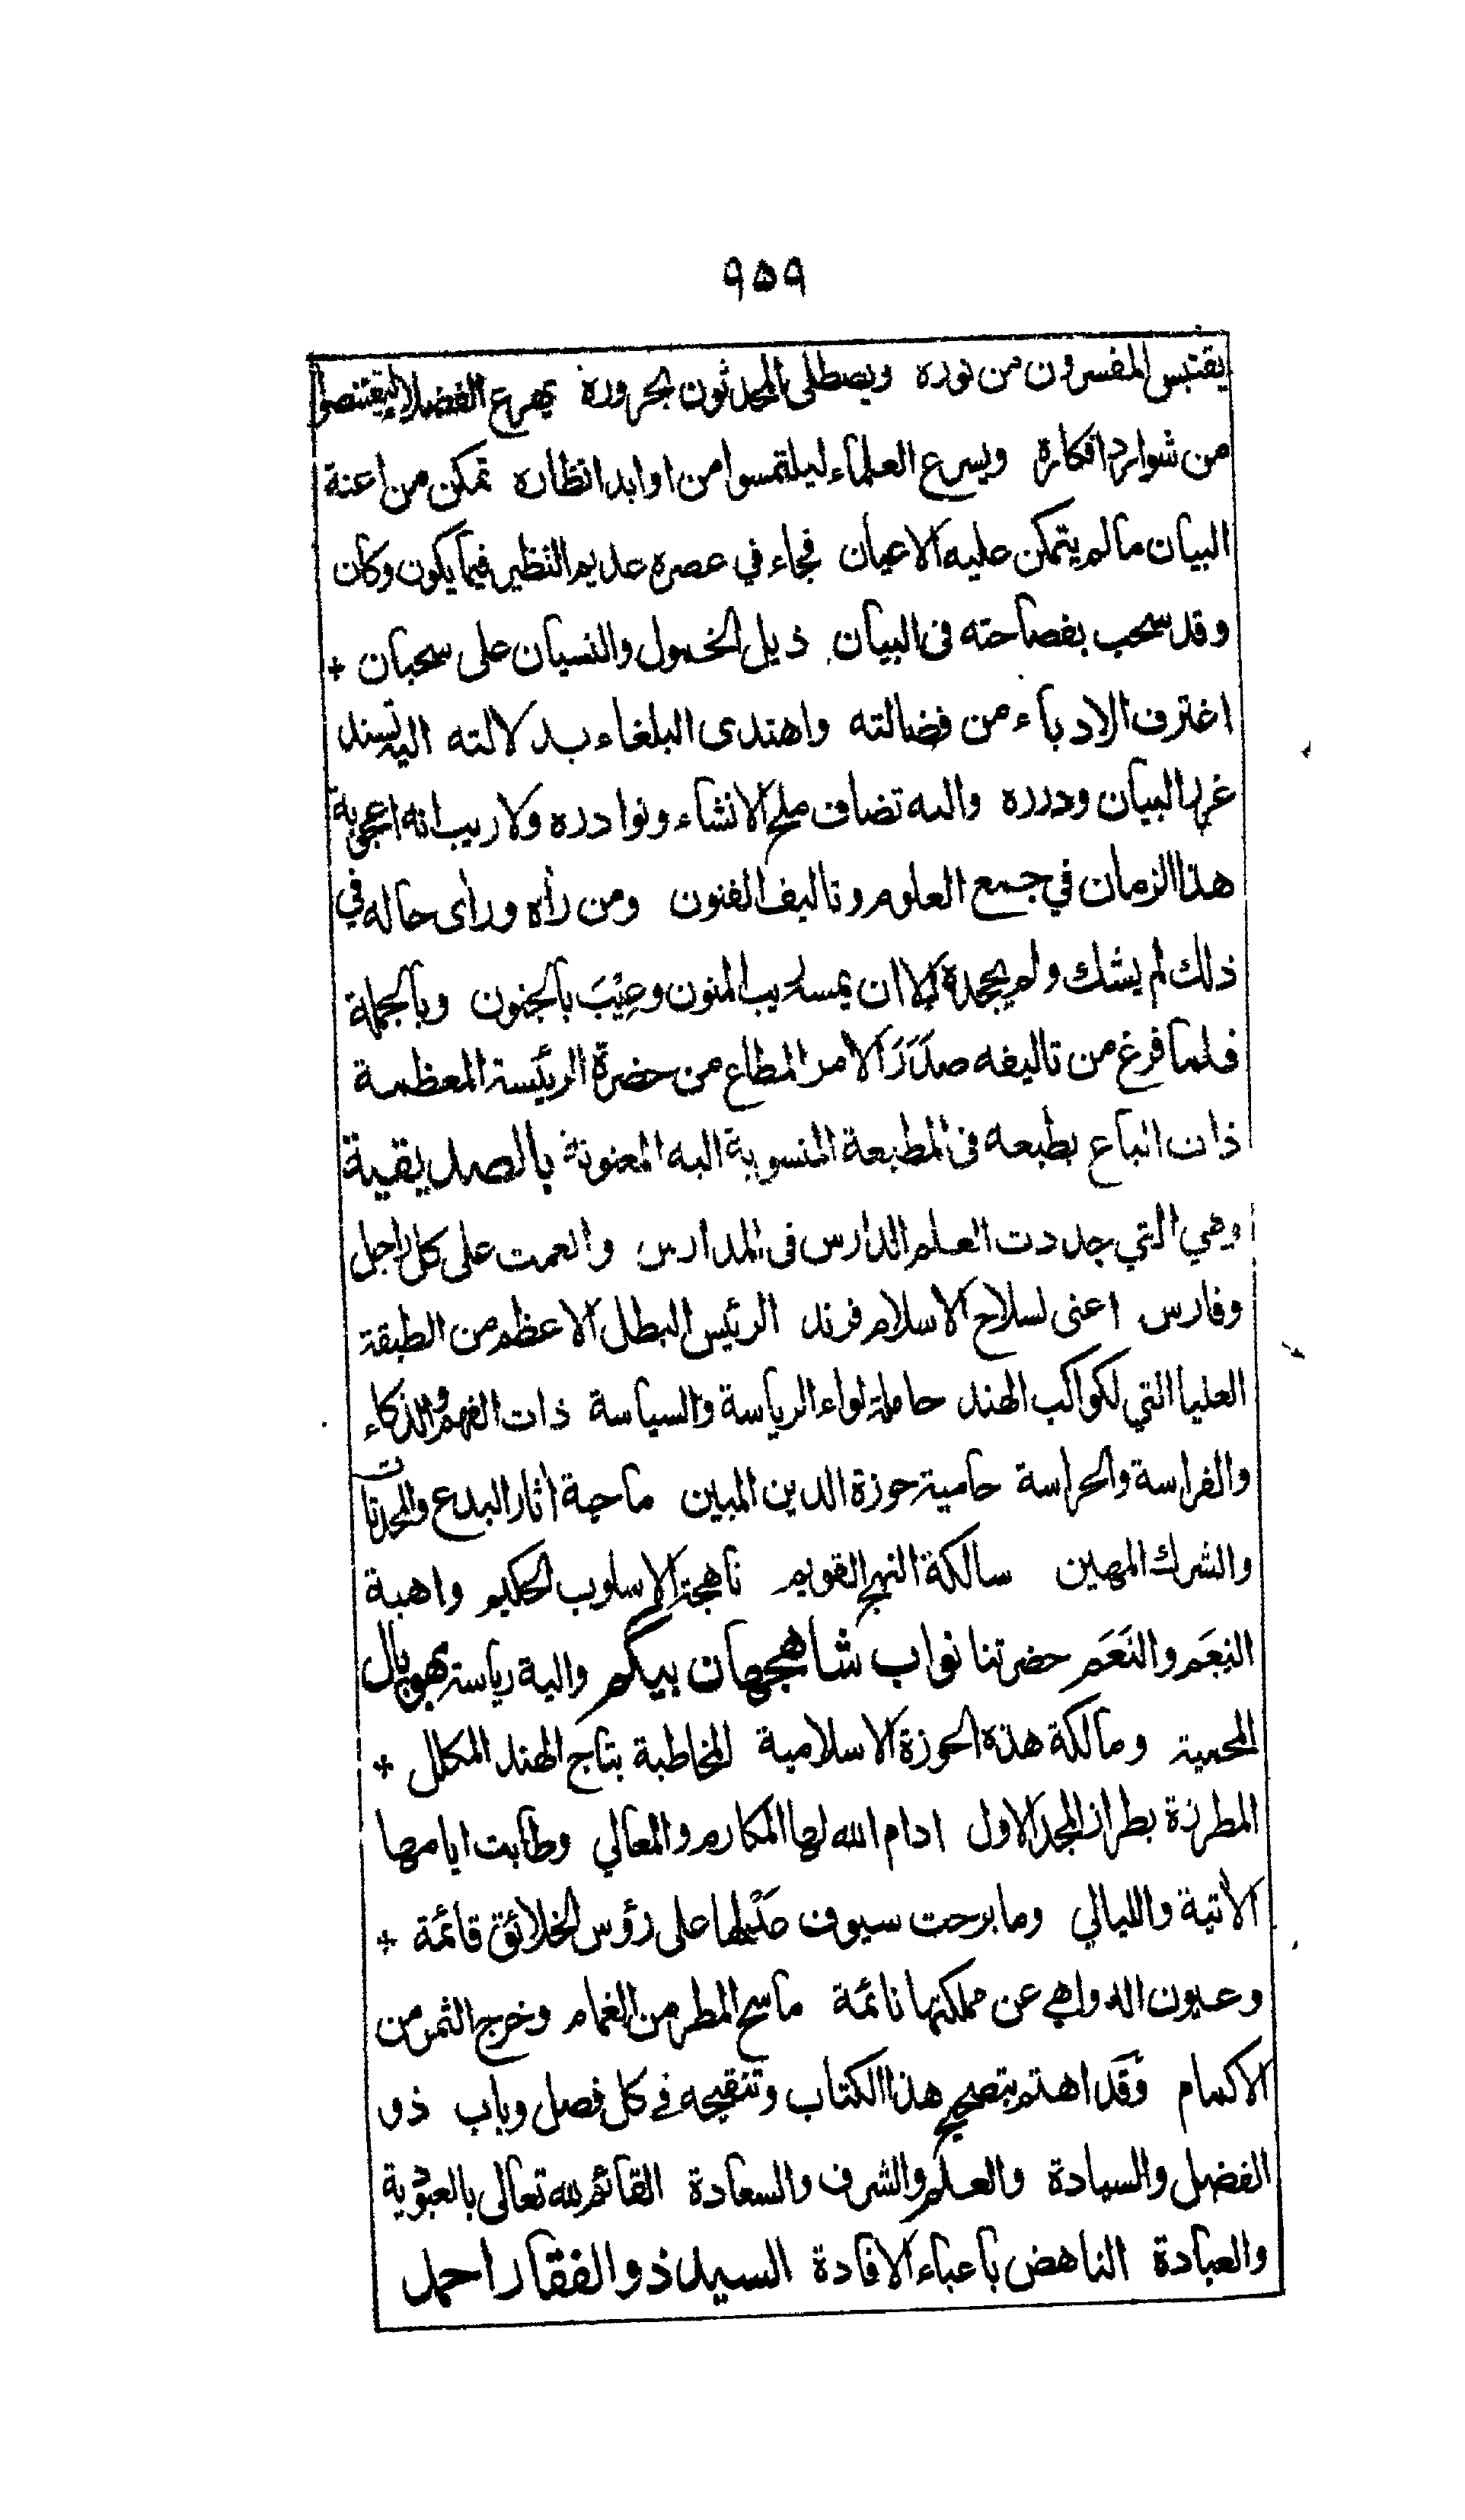 ۹۵۹
يقتبس المفسرون من نوره ويصطلى المحدثون بحروره يهرع الفضلاء ليقتنصوا
من شوارد افكاره ويسرع العلماء ليلتمسوا من اوابد انظاره تمكن من اعنة
البيان مالم يتمكن عليه الاعيان فجاء في عصره عديم النظير فيما يكون وكان
وقد سحب بفصاحته فى البيان ذيل الخمول والنسيان على سحبان +
اغترف الادباء من فضالته واهتدى البلغاء بدلالته اليه تسند
غرر البيان ودرره واليه تضاف ملح الانشاء ونوادره ولاريب انه اعجوبة
هذا الزمان في جمع العلوم وتاليف الفنون ومن راه وراى حاله في
ذلك لم يشك ولم يجحده الا ان يمسه ريب المنون وعِيْبَ بالجنون وبالجملة
فلما فرغ من تاليفه صَدَرَ الامر المطاع من حضرة الرئيسة المعظمة
ذات اتباع بطبعه فى المطبعة المنسوبة اليه المعنونة بالصديقية
وهي التي جددت العلم الدارس فى المدارس وانعمت على كل راجل
وفارس اعنى لسلاح الاسلام فرند الرئيس البطل الاعظم من الطبقة
العليا التي لكواكب الهند حاملة لواء الرياسة والسياسة ذات الفهم والذكاء
والفراسة والحراسة حامية حوزة الدين المبين ماحية اثار البدع والمحدثات
والشرك المهين سالكة النهج القويم ناهجة الاسلوب الحكيم واهبة
النِعَم والنَعَم حضرتنا نواب شاهجهان بيگم والية رياسة بهوپال
المحمية ومالكة هذه الحوزة الاسلامية المخاطبة بتاج الهند المكلل +
المطرزة بطراز المجد الاول ادام الله لها المكارم والمعالي وطابت ايامها
الاتية والليالي وما برحت سيوف عَدْلها على رؤس الخلائق قائمة +
وعيون الدواهي عن مملكتها نائمة ما سح المطر من الغمام وخرج الثمر من
الاكمام وَقَد اهتم بتصحيح هذا الكتاب وتنقيحه في كل فصل وباب ذو
الفضل والسيادة والعلم والشرف والسعادة القائم لله تعالى بالعبودية
والعبادة الناهض باعباء الافادة السيد ذو الفقار احمد